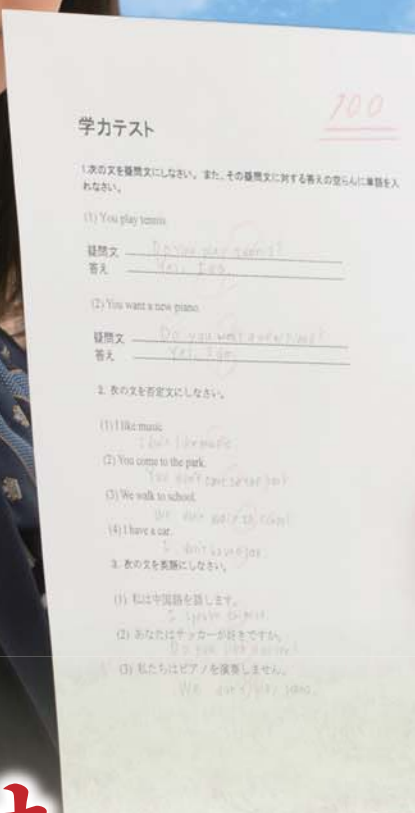 100
学力テスト
1.次の文を疑問文にしなさい。また、その疑問文に対する答えの空らんに単語を入
れなさい。
(1) You play tennis.
疑問文 Do you play tennis?
答え Yes, I do.
(2) You want a new piano.
疑問文 Do you want a new piano?
答え Yes, I do.
2. 次の文を否定文にしなさい。
(1) I like music.
I don't like music.
(2) You come to the park.
You don't come to the park.
(3) We walk to school.
We don't walk to school.
(4) I have a car.
I don't have a car.
3. 次の文を英語にしなさい。
(1) 私は中国語を話します。
I speak
(2) あなたはサッカーが好きですか。
Do you like soccer?
(3) 私たちはピアノを演奏しません。
We don't play piano.